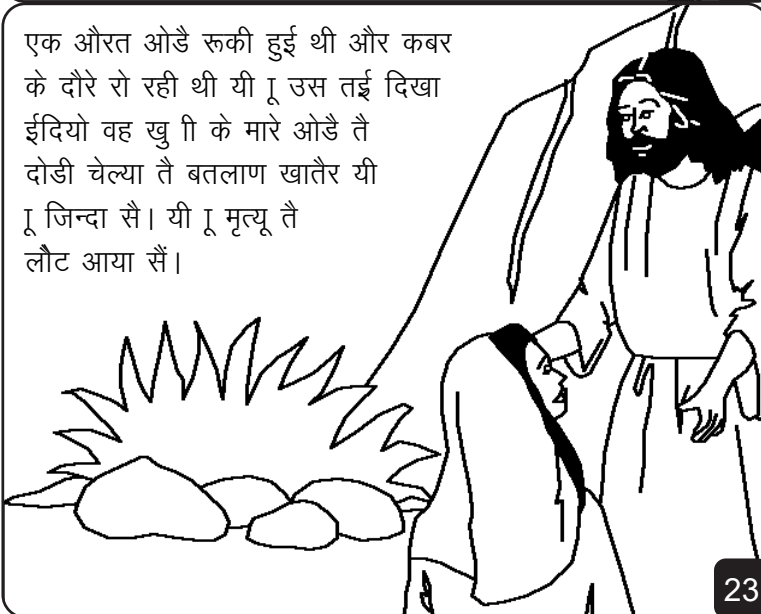 एक औरत ओडै रूकी हुई थी और कबर
के दौरे रो रही थी यी ाू उस तई दिखा
ईदियो वह खु ाी के मारे ओडै तै
दोडी चेल्या तै बतलाण खातैर यी
ाू जिन्दा सै। यी ाू मृत्यू तै
लौट आया सैं।
23